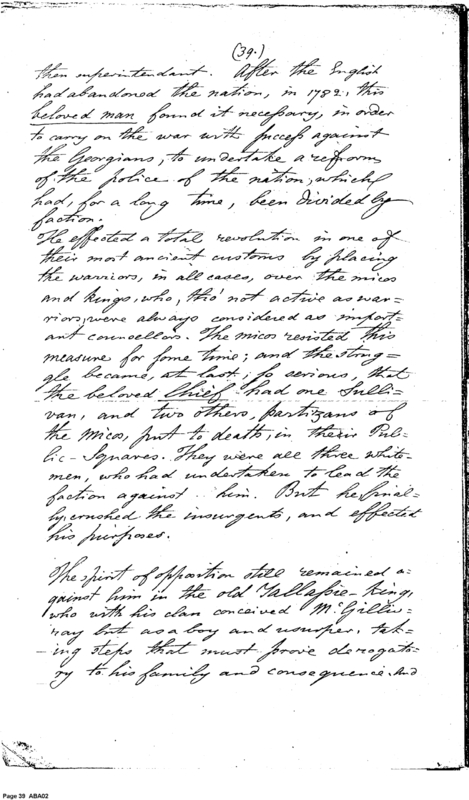 (39.)
then superintendant. After the English
had abandoned the nation, in 1782, this
beloved man found it necessary, in order
to carry on the war with success against
the Georgians, to undertake a reform
of the police of the nation, which
had, for a long time, been divided by
faction.
He effected a total revolution in one of
their most ancient customs by placing
the warriors, in all cases, over the micos
and kings, who, tho' not active as war=
riors, were always considered as import=
ant councellors. The micos resisted this
measure for some time; and the strug=
gle became, at last, so serious, that
the beloved Chief had one Sulli=
van, and two others, partizans of
the micos, put to death, in their Pub=
lic-Squares. They were all three white-
men, who had undertaken to lead the
faction against him. But he final=
ly crushed the insurgents, and effected
his purposes.
The spirit of opposition still remained a=
gainst him in the old Tallassie-king,
who with his clan conceived McGilliv=
ray but as a boy and usurper, tak=
ing steps that must prove derogato=
ry to his family and consequence. And
Page 39 ABA02